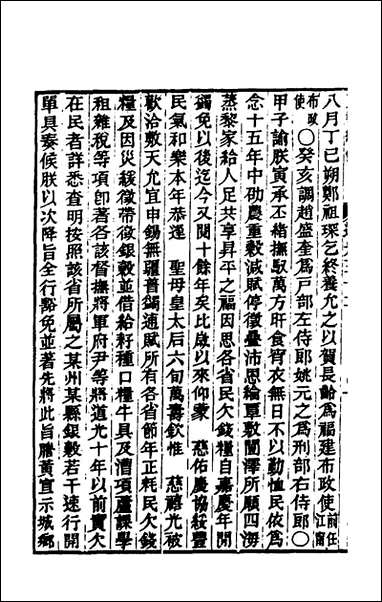 八月丁巳朔鄭祖琛乞終養允之以賀長齡爲福建布政使前任江甯
布政使○癸亥調趙盛奎爲戶部左侍郎姚元之爲刑部右侍郎○
甲子諭朕寅承丕緒撫馭萬方旰食宵衣無日不以勤恤民依爲
念十五年中劭農重穀減賦停徵疊沛恩綸覃敷闓澤所願四海
蒸黎家給人足共享昇平之福因思各省民欠錢糧自嘉慶年間
蠲免以後迄今又閱十餘年矣比歲以來仰蒙 慈佑農協綏豐
民氣和樂本年恭逢 聖母皇太后六旬萬壽欽惟 慈禧光被
歡洽敷天允宜申錫無疆普蠲逋賦所有各省節年正耗民欠錢
糧及因災緩徵帶徵銀穀並借給籽種口糧牛具及漕項蘆課學
租雜稅等項卽著各該督撫將軍府尹等將道光十年以前實欠
在民者詳悉查明按照該省所屬之某州某縣銀穀若干速行開
單具奏候朕以次降旨全行豁免並著先將此旨謄黃宣示城鄉